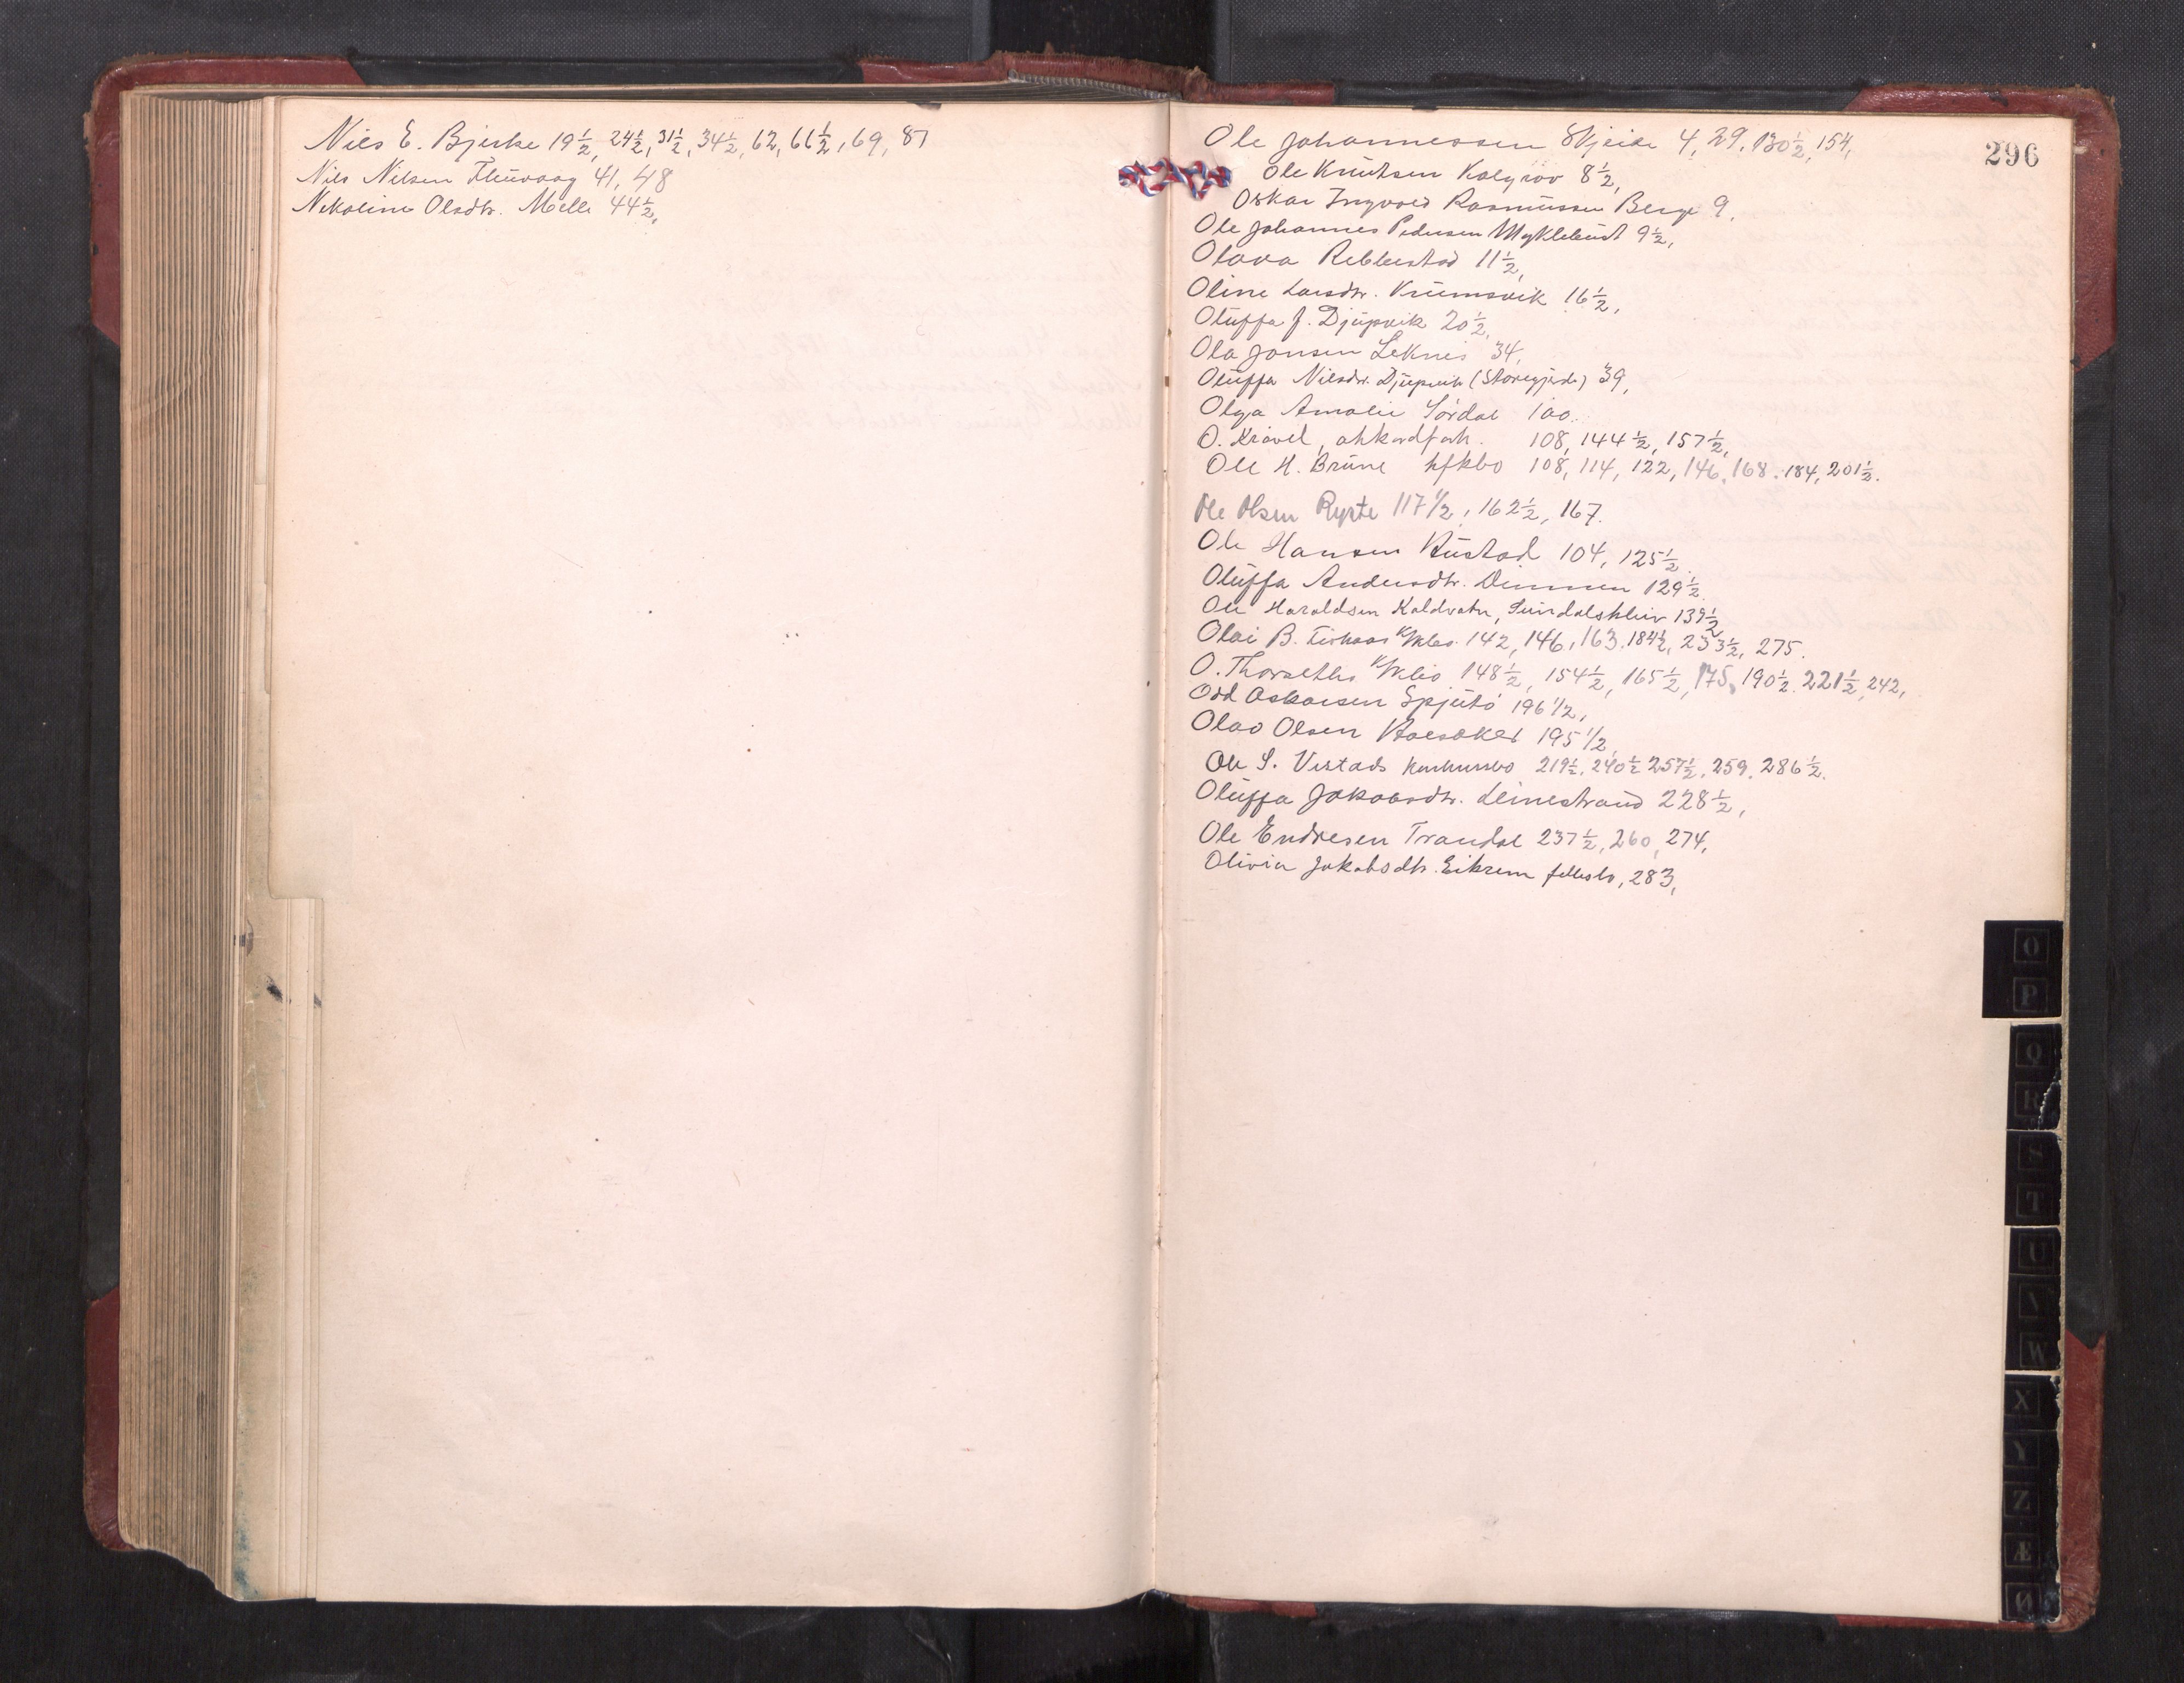 Nils E. Bjerke 19½, 24½, 31½, 34½, 62, 66½, 69, 87
Nils Nilsen Fleuvaag 41, 48
Nikoline Olsdtr. Melle 44½,
296
Ole Johannessen Skjeide 4, 29, 130½, 154,
Ole Knutsen Kolgrov 8½,
Oskar Ingvald Rasmussen Berge 9,
Ole Johannes Pedersen Myklebust 9½,
Olava Rebbestad 11½,
Oline Larsdtr. Krumsvik 16½,
Oluffa J. Djupvik 20½,
Ola Jonsen Leknes 34,
Oluffa Nilsdtr. Djupvik (Storegjerde) 39,
Olga Amalie Sørdal 100.
O. Kravel, akkordforh. 108, 144½, 157½,
Ole H. Brune kfkbo 108, 114, 122, 146, 168, 184, 201½.
Ole Olsen Ryste 117½, 162½, 167.
Ole Hansen Rustad 104, 125½.
Oluffa Andersdtr. Dimmen 129½.
Ole Haraldsen Kaldvatn, 139½
Olai B. 142, 146, 163, 184½, 233½, 275.
O. Thorseths 148½, 154½, 165½, 175, 190½, 221½, 242,
Odd Oskarsen Spjutø 196½,
Olav Olsen 195½,
Ole S. Vestads konkursbo 219½, 240½ 257½, 259, 286½.
Oluffa Jakobsdtr. Leinestrand 228½,
Ole Endresen Trandal 237½, 260, 274,
Olivia Jakobsdtr. Eikrem fellesbo, 283,
O
P
Q
R
S
T
U
V
W
X
Y
Z
Æ
Ø